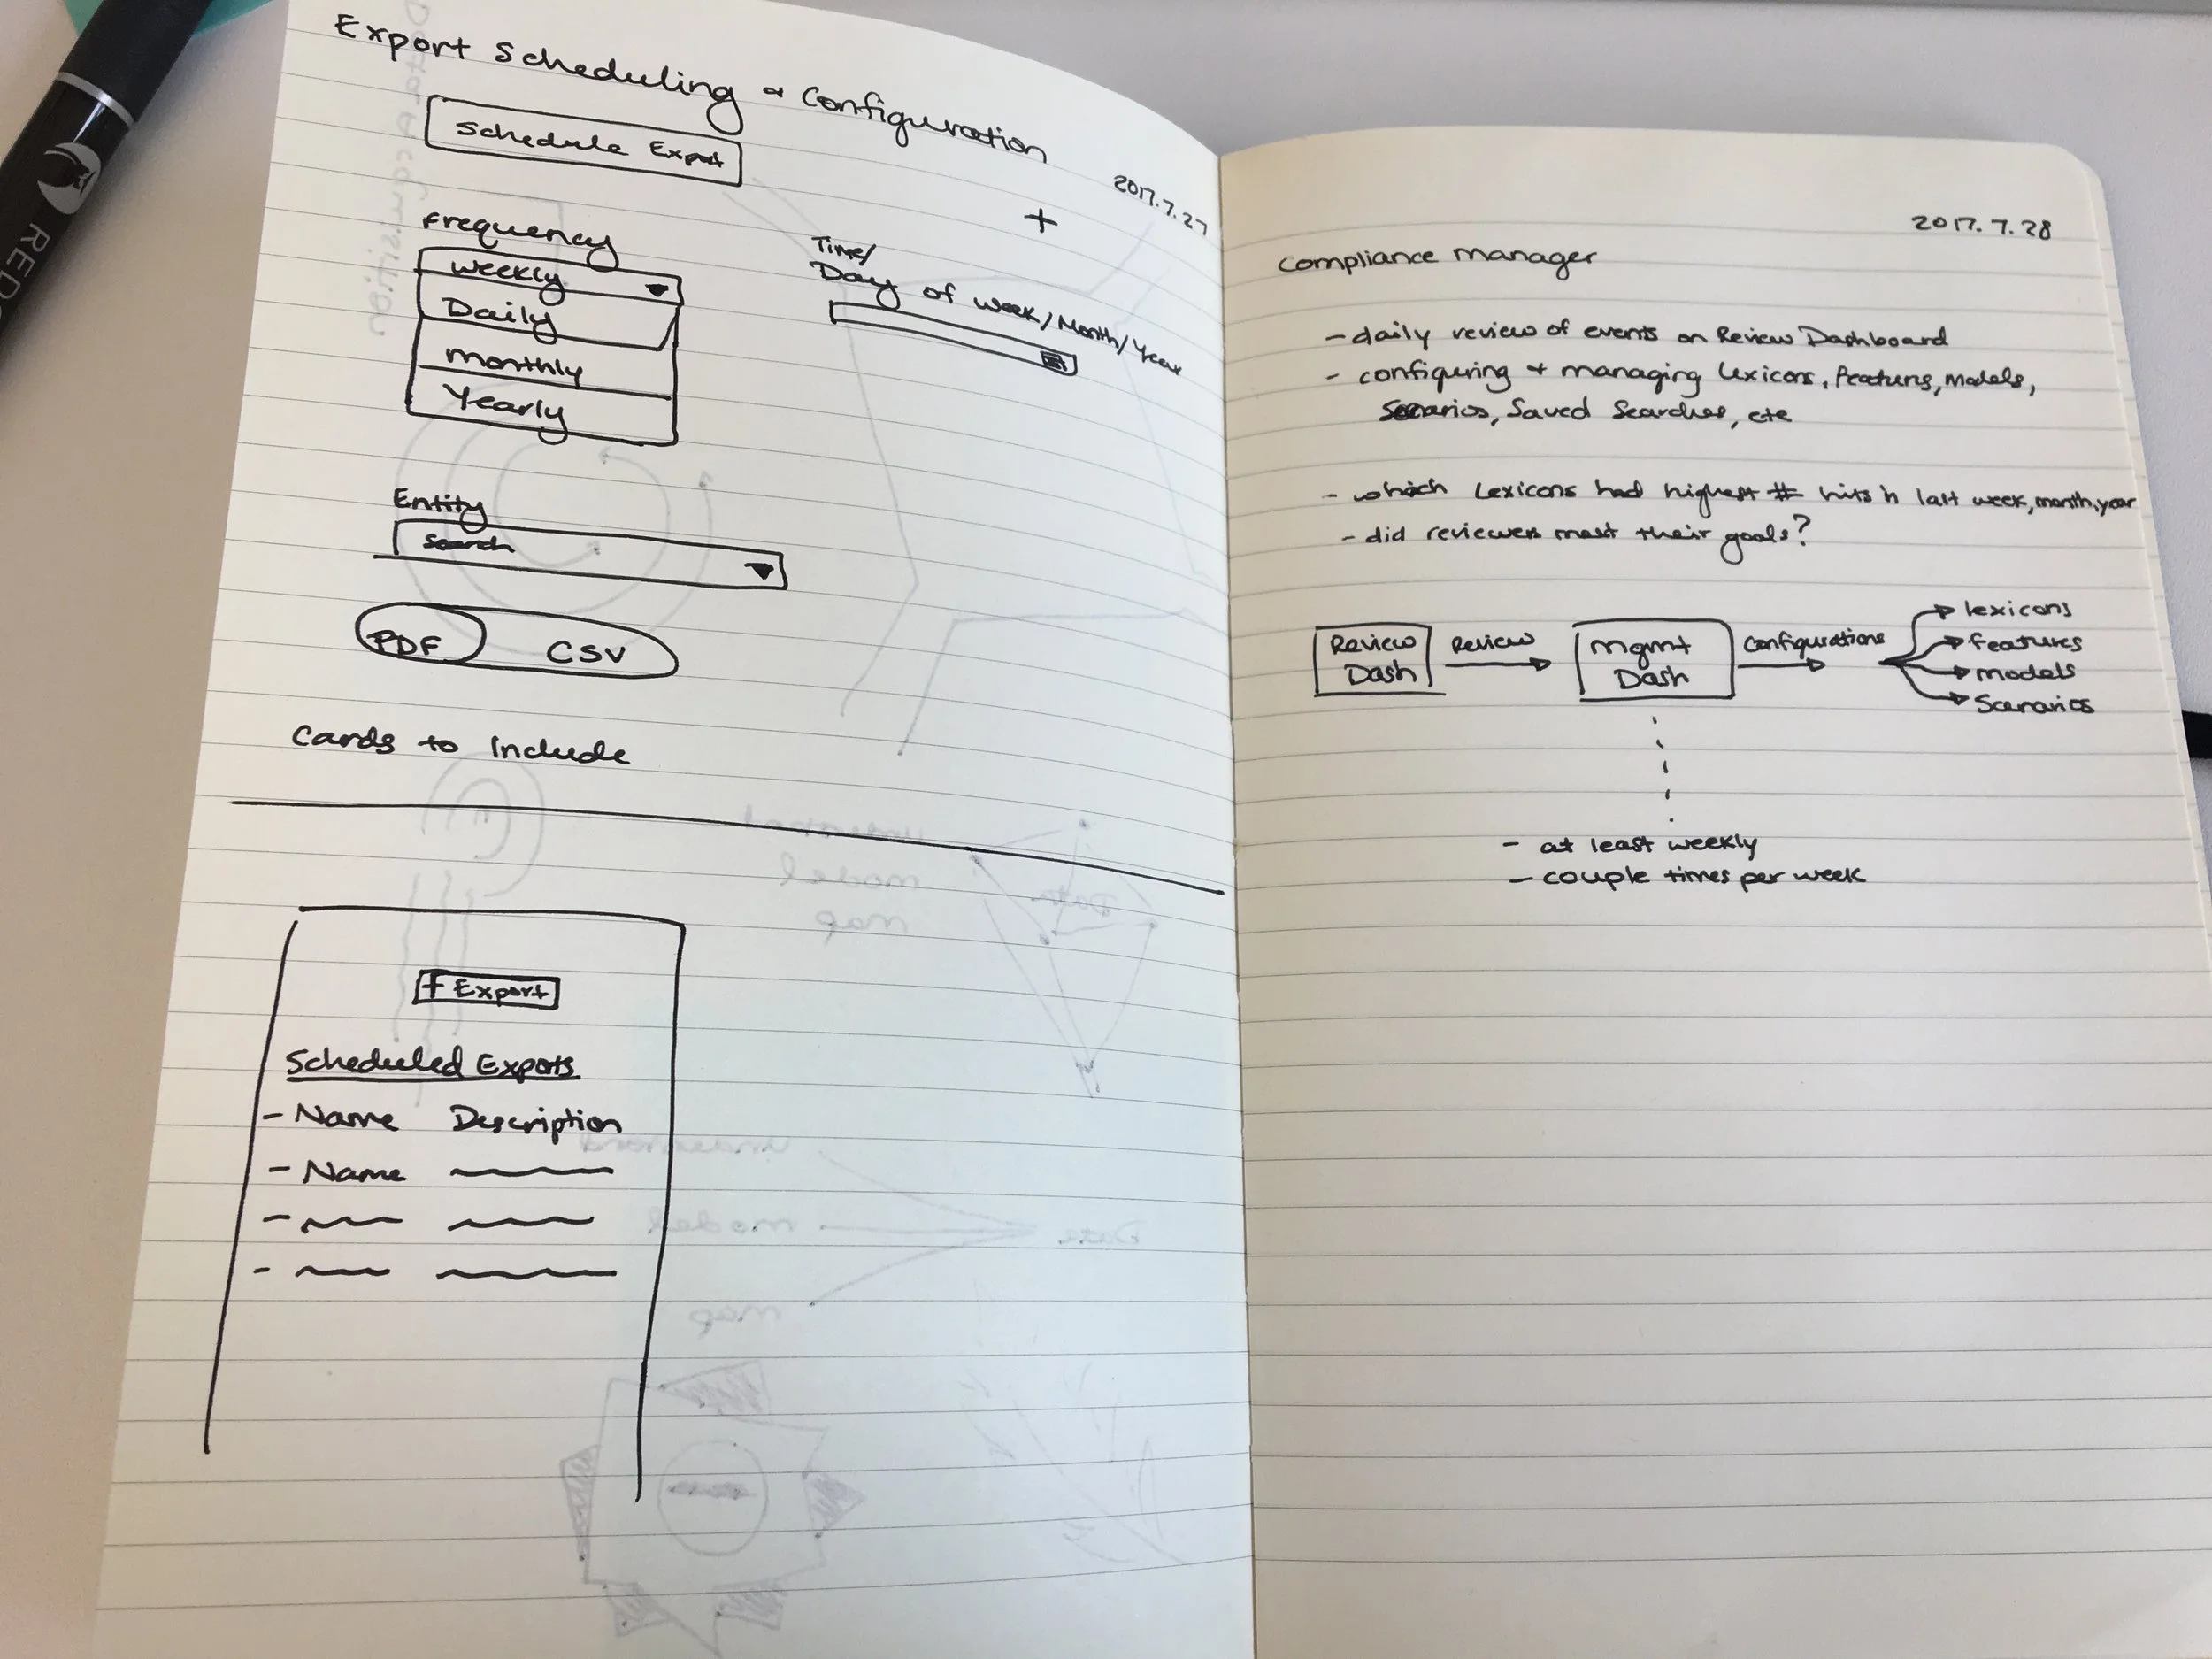 Export Scheduling & Configuration
2017.7.27
Schedule Export
+
Frequency
Weekly
Daily
Monthly
Yearly
Time/
Day of Week/Month/Year
Entity
Search
PDF CSV
Cards to Include
+ Export
Scheduled Exports
- Name Description
- Name
2017.7.28
Compliance Manager
- daily review of events on Review Dashboard
- configuring + managing lexicons, features, models,
Scenarios, Saved Searches, etc
- which Lexicons had highest # hits in last week, month, year
- did reviewers meet their goals?
Review
Dash
Review
Mgmt
Dash
Configurations
lexicons
features
models
Scenarios
- at least weekly
- couple times per week
RED